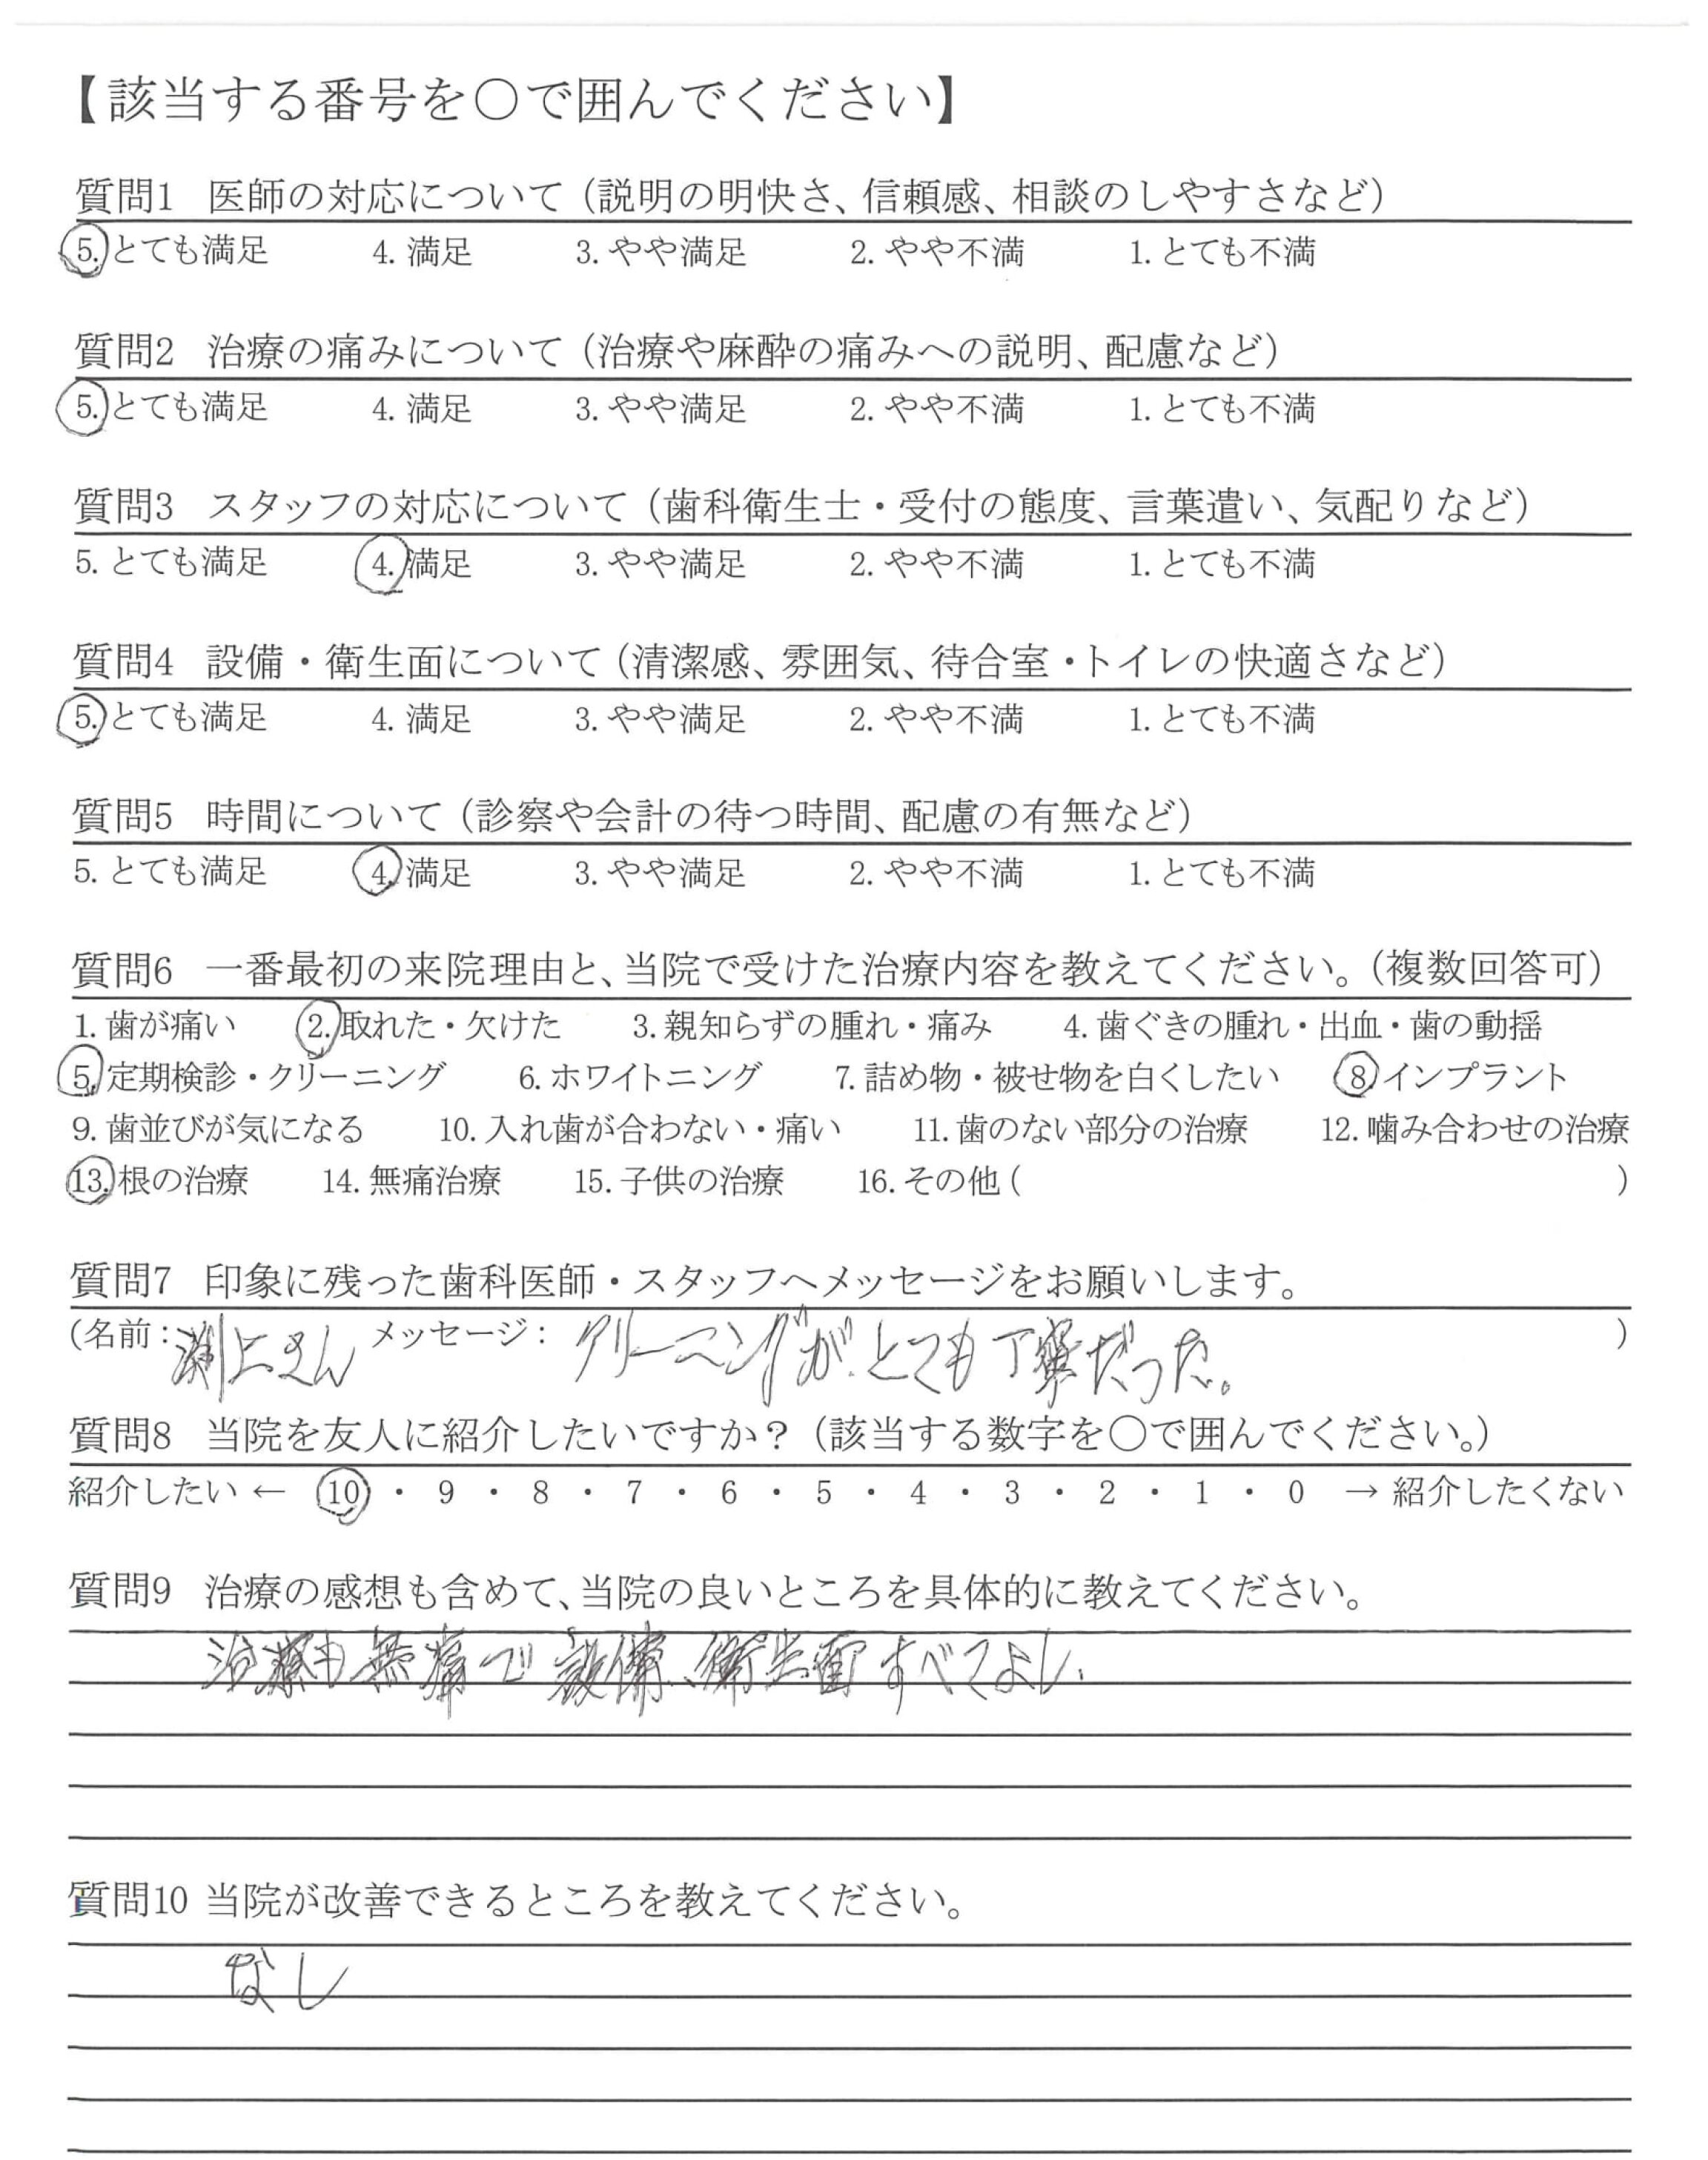 【該当する番号を○で囲んでください】
質問1 医師の対応について（説明の明快さ、信頼感、相談のしやすさなど）
5. とても満足 4. 満足 3. やや満足 2. やや不満 1. とても不満
質問2 治療の痛みについて（治療や麻酔の痛みへの説明、配慮など）
5. とても満足 4. 満足 3. やや満足 2. やや不満 1. とても不満
質問3 スタッフの対応について（歯科衛生士・受付の態度、言葉遣い、気配りなど）
5. とても満足 4. 満足 3. やや満足 2. やや不満 1. とても不満
質問4 設備・衛生面について（清潔感、雰囲気、待合室・トイレの快適さなど）
5. とても満足 4. 満足 3. やや満足 2. やや不満 1. とても不満
質問5 時間について（診察や会計の待つ時間、配慮の有無など）
5. とても満足 4. 満足 3. やや満足 2. やや不満 1. とても不満
質問6 一番最初の来院理由と、当院で受けた治療内容を教えてください。（複数回答可）
1. 歯が痛い 2. 取れた・欠けた 3. 親知らずの腫れ・痛み 4. 歯ぐきの腫れ・出血・歯の動揺
5. 定期検診・クリーニング 6. ホワイトニング 7. 詰め物・被せ物を白くしたい 8. インプラント
9. 歯並びが気になる 10. 入れ歯が合わない・痛い 11. 歯のない部分の治療 12. 噛み合わせの治療
13. 根の治療 14. 無痛治療 15. 子供の治療 16. その他（ ）
質問7 印象に残った歯科医師・スタッフへメッセージをお願いします。
（名前：渕上さん メッセージ：クリーニングがとても丁寧だった。）
質問8 当院を友人に紹介したいですか？（該当する数字を○で囲んでください。）
紹介したい ← 10 ・ 9 ・ 8 ・ 7 ・ 6 ・ 5 ・ 4 ・ 3 ・ 2 ・ 1 ・ 0 → 紹介したくない
質問9 治療の感想も含めて、当院の良いところを具体的に教えてください。
治療も無痛で設備、衛生面すべてよし.
質問10 当院が改善できるところを教えてください。
なし